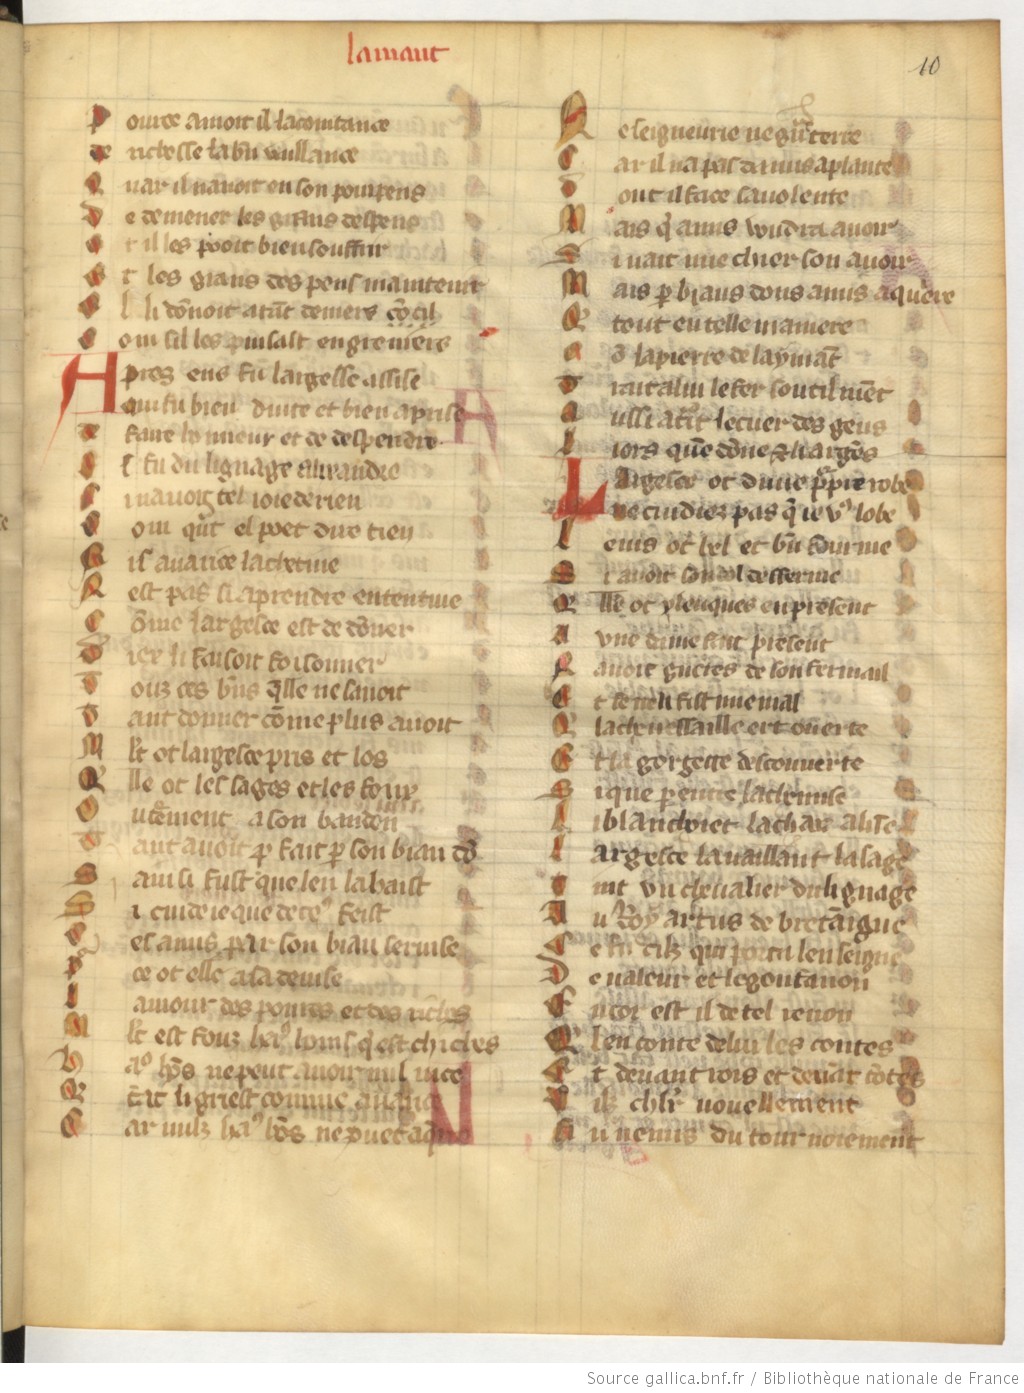 lamant
10
Pource amoit il lacointance
De richesse la bn vuillance
Quar il navoit en son pourpens
De demener les grans despens
Et il les pooit bien souffrir
Et les grans despens maintenir
El li donoit atant deniers
Com sil les puisast en greniers
Apres ens fu largesse assise
Qui fu bien duite et bien aprise
De faire honneur et de despendre
El fu du lignage alixandre
Si navoit tel joie de rien
Com quant el poet dire tien
Nis avarice la chetive
Nest pas si a prendre ententive
Come largesce est de doner
Diex li faisoit foisonner
Touz ces bns qlle ne savoit
Tant donner come plus avoit
Mlt ot largesce pris et los
Elle ot les sages et les fous
Outeement a son bandon
Tant avoit p fait p son biau don
Sainsi fust que len la haist
Si cuide ie que de ceus feist
Ces amis par son biau servise
Por ce ot elle a sa devise
Lamour des poures et des riches
Mlt est fouz haus homs qest chiches
Haus homs ne peut avoir nul vice
Qe tant li griest comme avarice
Car nulz haus homs ne puet aqerre
Ne seigneurie ne gnt terre
Car il na pas damis a plante
Dont il face sa volente
Mais q amis voudra avoir
Si nait mie chier son avoir
Mais p biaus dons amis aquere
Car tout en telle maniere
Com la pierre de laymant
Trait a lui le fer soutilment
Aussi atrait le cuer des gens
Liors quen done et li argens
Largesce ot dune pourpre robe
Ne cuidiez pas q ie vous lobe
Le vis ot bel et bn fourme
Si avoit son col desferme
Qelle ot ylenques en present
A une dame fait present
Navoit gueres de son fermail
Et se ne li fist mie mal
Qe la cheuessaille ert ouerte
Et la gergete descouverte
Si que p entre la chemise
Li blanchoiet la char alise
Largesce la vaillant la sage
Tint un chevalier du lignage
Au Roy artus de bretaigne
Ce fu cilz qui porta lenseigne
De valeur et le gonfanon
Encor est il de tel renon
Qe len conte de lui les contes
Et devant rois et devant contes
Cilz chlr nouellement
Fu venus du tournoiement
Source gallica.bnf.fr / Bibliothèque nationale de France